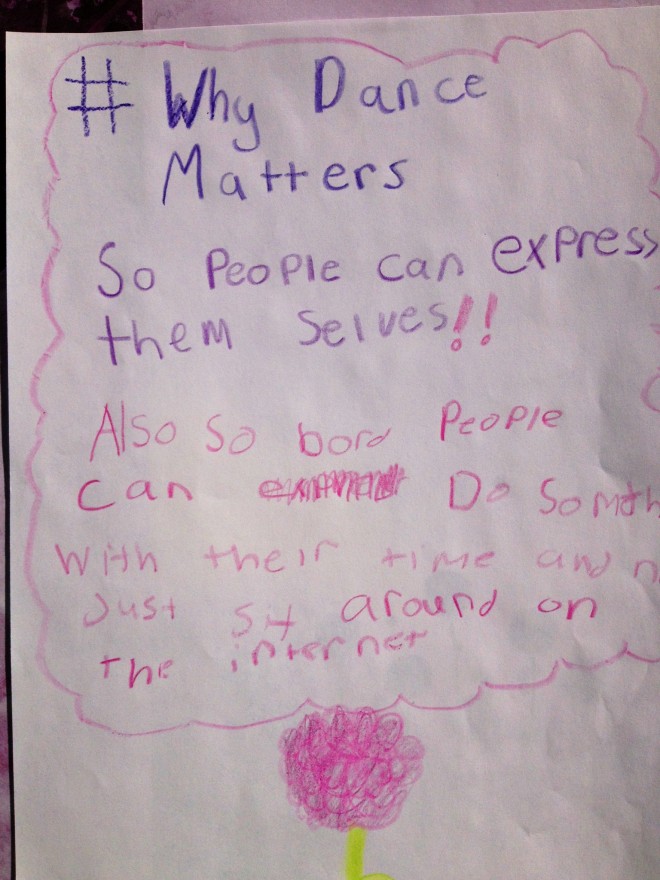 # Why Dance
Matters
So People can express
them selves!!
Also so bord People
can Do Somth
With their time and n
Just sit around on
the internet